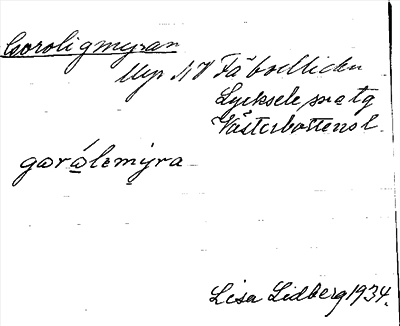 Coroligmyran
Myr NV Fäbodliden
Lycksele sn o tg
Västerbottens l.
gɷrálemýra
Lisa Lidberg 1934.